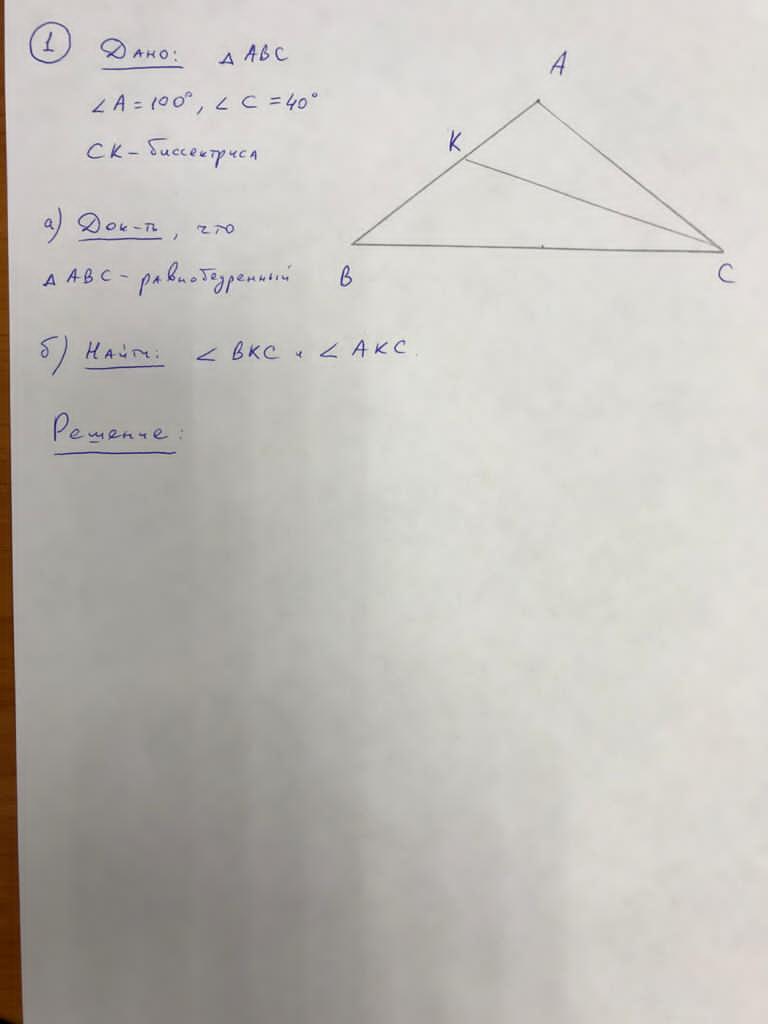 1 Дано: △ ABC
∠A = 100°, ∠ C = 40°
CK – биссектриса
а) Док-ть, что
△ ABC – равнобедренный
б) Найти: ∠ BKC и ∠ AKC.
Решение:
A
K
B
C